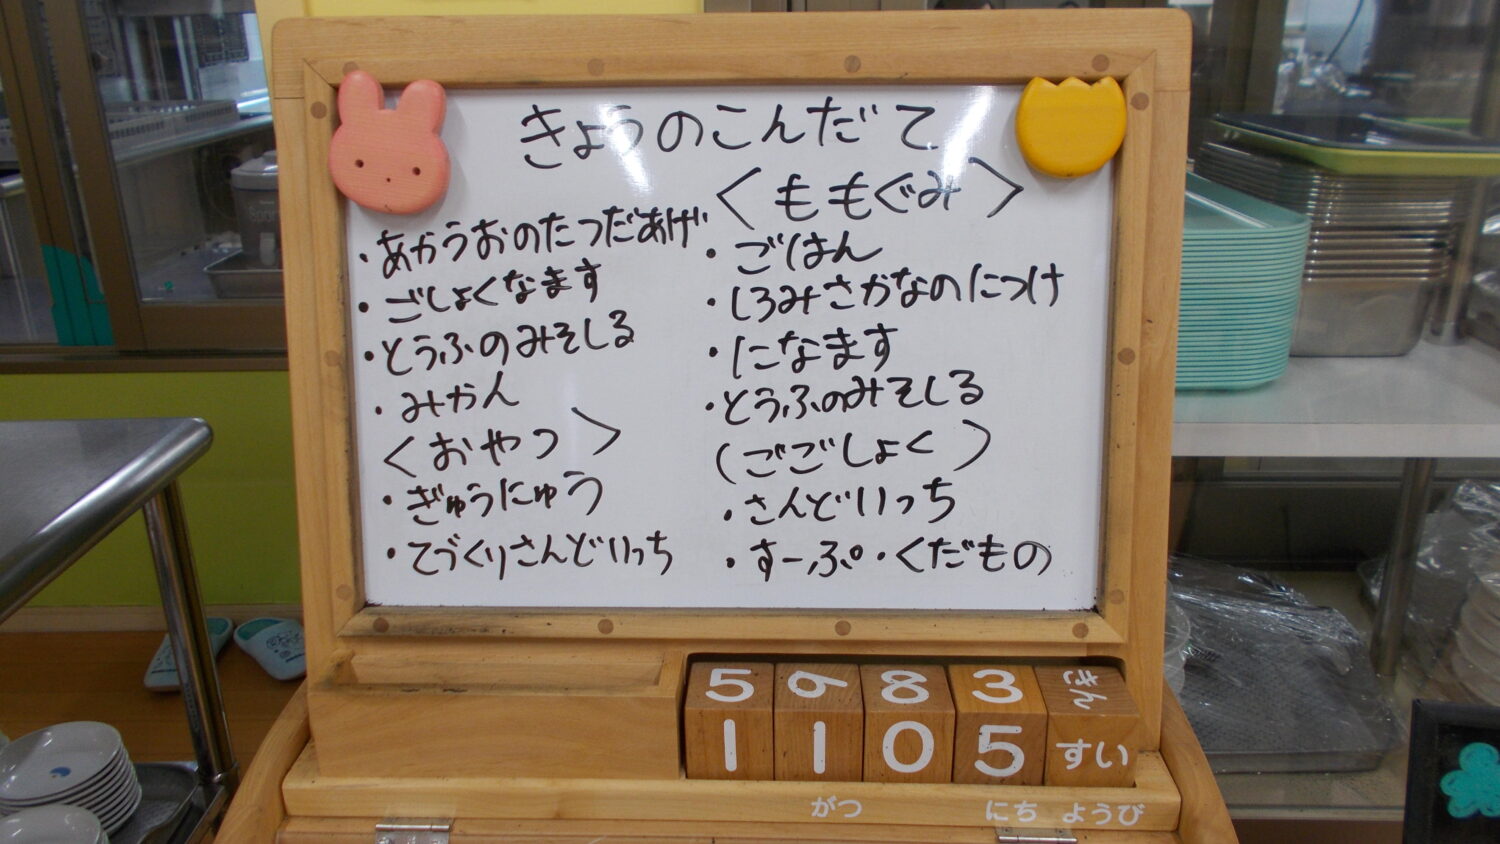 きょうのこんだて
・あかうおのたつだあげ
・ごしょくなます
・とうふのみそしる
・みかん
〈おやつ〉
・ぎゅうにゅう
・てづくりさんどいっち
〈ももぐみ〉
・ごはん
・しろみさかなのにつけ
・になます
・とうふのみそしる
(ごごしょく)
・さんどいっち
・すーぷ・くだもの
5 9 8 3 きん
1 1 0 5 すい
がつ にち ようび